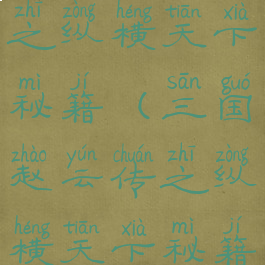 zhī zòng héng tiān xià
之 纵 横 天 下
mì jí sān guó
秘 籍 ( 三 国
zhào yún chuán zhī zòng
赵 云 传 之 纵
héng tiān xià mì jí
横 天 下 秘 籍